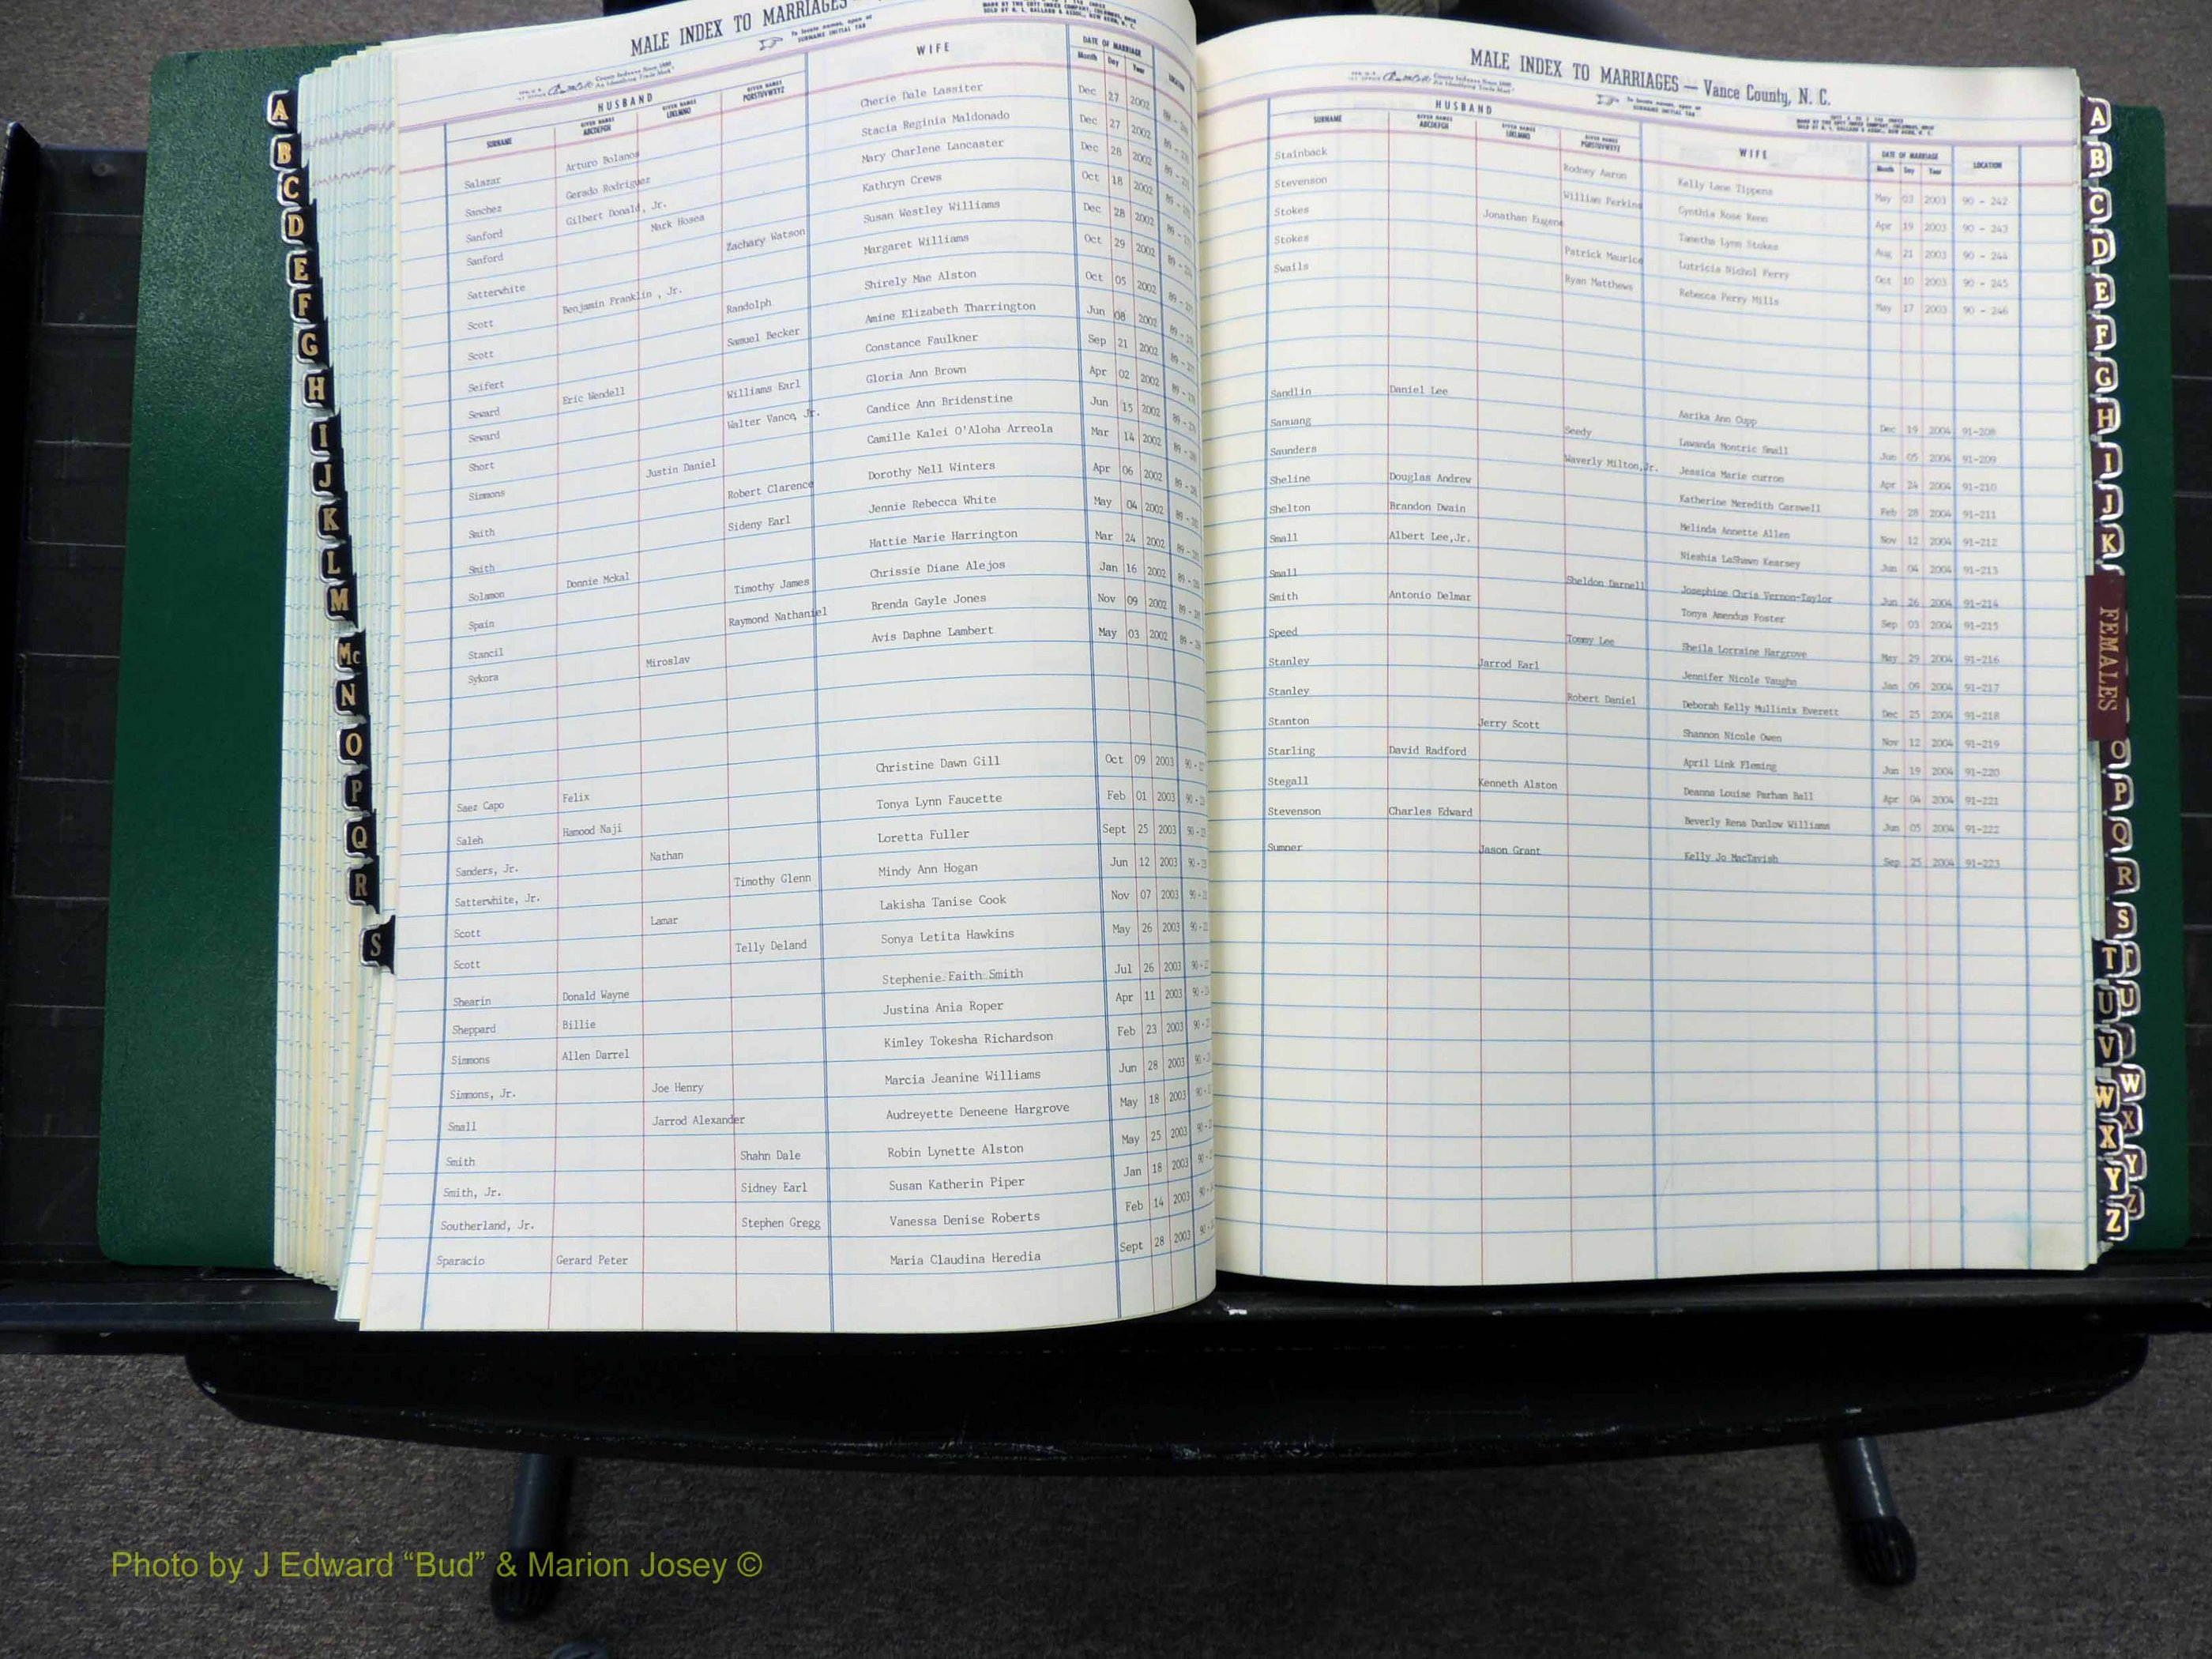 MALE INDEX TO MARRIAGES
To locate names, open at
SURNAME INITIAL TAB
HUSBAND WIFE DATE OF MARRIAGE LOCATION
SURNAME GIVEN NAMES ABCDEFGH GIVEN NAMES IJKLMNO GIVEN NAMES PQRSTUVWXYZ Month Day Year
Salazar Arturo Bolanos Cherie Dale Lassiter Dec 27 2002
Sanchez Gerado Rodriguez Stacia Reginia Maldonado Dec 27 2002
Sanford Gilbert Donald, Jr. Mary Charlene Lancaster Dec 28 2002
Sanford Mark Hosea Kathryn Crews Oct 18 2002
Satterwhite Zachary Watson Susan Westley Williams Dec 28 2002
Scott Benjamin Franklin , Jr. Margaret Williams Oct 29 2002
Scott Randolph Shirely Mae Alston Oct 05 2002
Seifert Samuel Becker Amine Elizabeth Tharrington Jun 08 2002
Seward Eric Wendell Constance Faulkner Sep 21 2002
Seward Williams Earl Gloria Ann Brown Apr 02 2002
Short Walter Vance, Jr. Candice Ann Bridenstine Jun 15 2002
Simmons Justin Daniel Camille Kalei O'Aloha Arreola Mar 14 2002
Smith Robert Clarence Dorothy Nell Winters Apr 06 2002
Smith Sideny Earl Jennie Rebecca White May 04 2002
Solamon Donnie Mckal Hattie Marie Harrington Mar 24 2002
Spain Timothy James Chrissie Diane Alejos Jan 16 2002
Stancil Raymond Nathaniel Brenda Gayle Jones Nov 09 2002
Sykora Miroslav Avis Daphne Lambert May 03 2002
Saez Capo Felix Christine Dawn Gill Oct 09 2003
Saleh Hamood Naji Tonya Lynn Faucette Feb 01 2003
Sanders, Jr. Nathan Loretta Fuller Sept 25 2003
Satterwhite, Jr. Timothy Glenn Mindy Ann Hogan Jun 12 2003
Scott Lamar Lakisha Tanise Cook Nov 07 2003
Scott Telly Deland Sonya Letita Hawkins May 26 2003
Shearin Donald Wayne Stephenie Faith Smith Jul 26 2003
Sheppard Billie Justina Ania Roper Apr 11 2003
Simmons Allen Darrel Kimley Tokesha Richardson Feb 23 2003
Simmons, Jr. Joe Henry Marcia Jeanine Williams Jun 28 2003
Small Jarrod Alexander Audreyette Deneene Hargrove May 18 2003
Smith Shahn Dale Robin Lynette Alston May 25 2003
Smith, Jr. Sidney Earl Susan Katherin Piper Jan 18 2003
Southerland, Jr. Stephen Gregg Vanessa Denise Roberts Feb 14 2003
Sparacio Gerard Peter Maria Claudina Heredia Sept 28 2003
MALE INDEX TO MARRIAGES — Vance County, N. C.
To locate names, open at
SURNAME INITIAL TAB
HUSBAND WIFE DATE OF MARRIAGE LOCATION
SURNAME GIVEN NAMES ABCDEFGH GIVEN NAMES IJKLMNO GIVEN NAMES PQRSTUVWXYZ Month Day Year
Stainback Rodney Aaron Kelly Lane Tippens May 03 2003 90 - 242
Stevenson William Perkins Cynthia Rose Renn Apr 19 2003 90 - 243
Stokes Jonathan Eugene Tanetha Lynn Stokes Aug 21 2003 90 - 244
Stokes Patrick Maurice Lutricia Nichol Perry Oct 10 2003 90 - 245
Swails Ryan Matthews Rebecca Perry Mills May 17 2003 90 - 246
Sandlin Daniel Lee Aarika Ann Cupp Dec 19 2004 91-208
Sanuang Seedy Lawanda Montric Small Jun 05 2004 91-209
Saunders Waverly Milton,Jr. Jessica Marie curron Apr 24 2004 91-210
Sheline Douglas Andrew Katherine Meredith Carswell Feb 28 2004 91-211
Shelton Brandon Dwain Melinda Annette Allen Nov 12 2004 91-212
Small Albert Lee,Jr. Nieshia LaShawn Kearsey Jun 04 2004 91-213
Small Sheldon Darnell Josephine Chris Vernon-Taylor Jun 26 2004 91-214
Smith Antonio Delmar Tonya Amendus Foster Sep 03 2004 91-215
Speed Tommy Lee Sheila Lorraine Hargrove May 29 2004 91-216
Stanley Jarrod Earl Jennifer Nicole Vaughn Jan 09 2004 91-217
Stanley Robert Daniel Deborah Kelly Mullinix Everett Dec 25 2004 91-218
Stanton Jerry Scott Shannon Nicole Owen Nov 12 2004 91-219
Starling David Radford April Link Fleming Jun 19 2004 91-220
Stegall Kenneth Alston Deanna Louise Parham Ball Apr 04 2004 91-221
Stevenson Charles Edward Beverly Rena Dunlow Williams Jun 05 2004 91-222
Sumner Jason Grant Kelly Jo MacTavish Sep 25 2004 91-223
A
B
C
D
E
F
G
H
I
J
K
L
M
Mc
N
O
P
Q
R
S
A
B
C
D
E
F
G
H
I
J
K
FEMALES
O
P
Q
R
S
T
U
V
W
X
Y
Z
Photo by J Edward “Bud” & Marion Josey ©